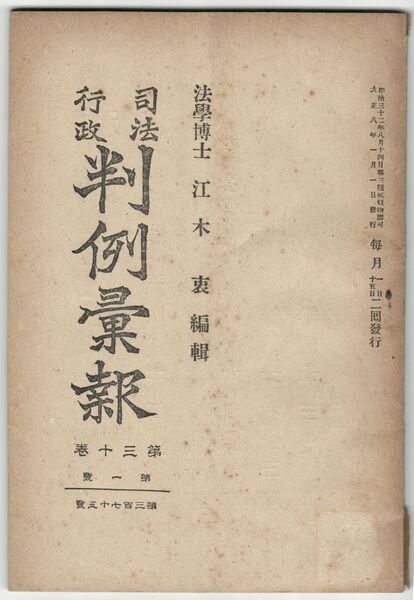 明治三十二年八月十四日第三種郵便物認可
大正八年一月一日發行
每月一日十五日二回發行
法學博士 江木衷編輯
司法
行政
判例彙報
第三十卷
第一號
第三百七十五號